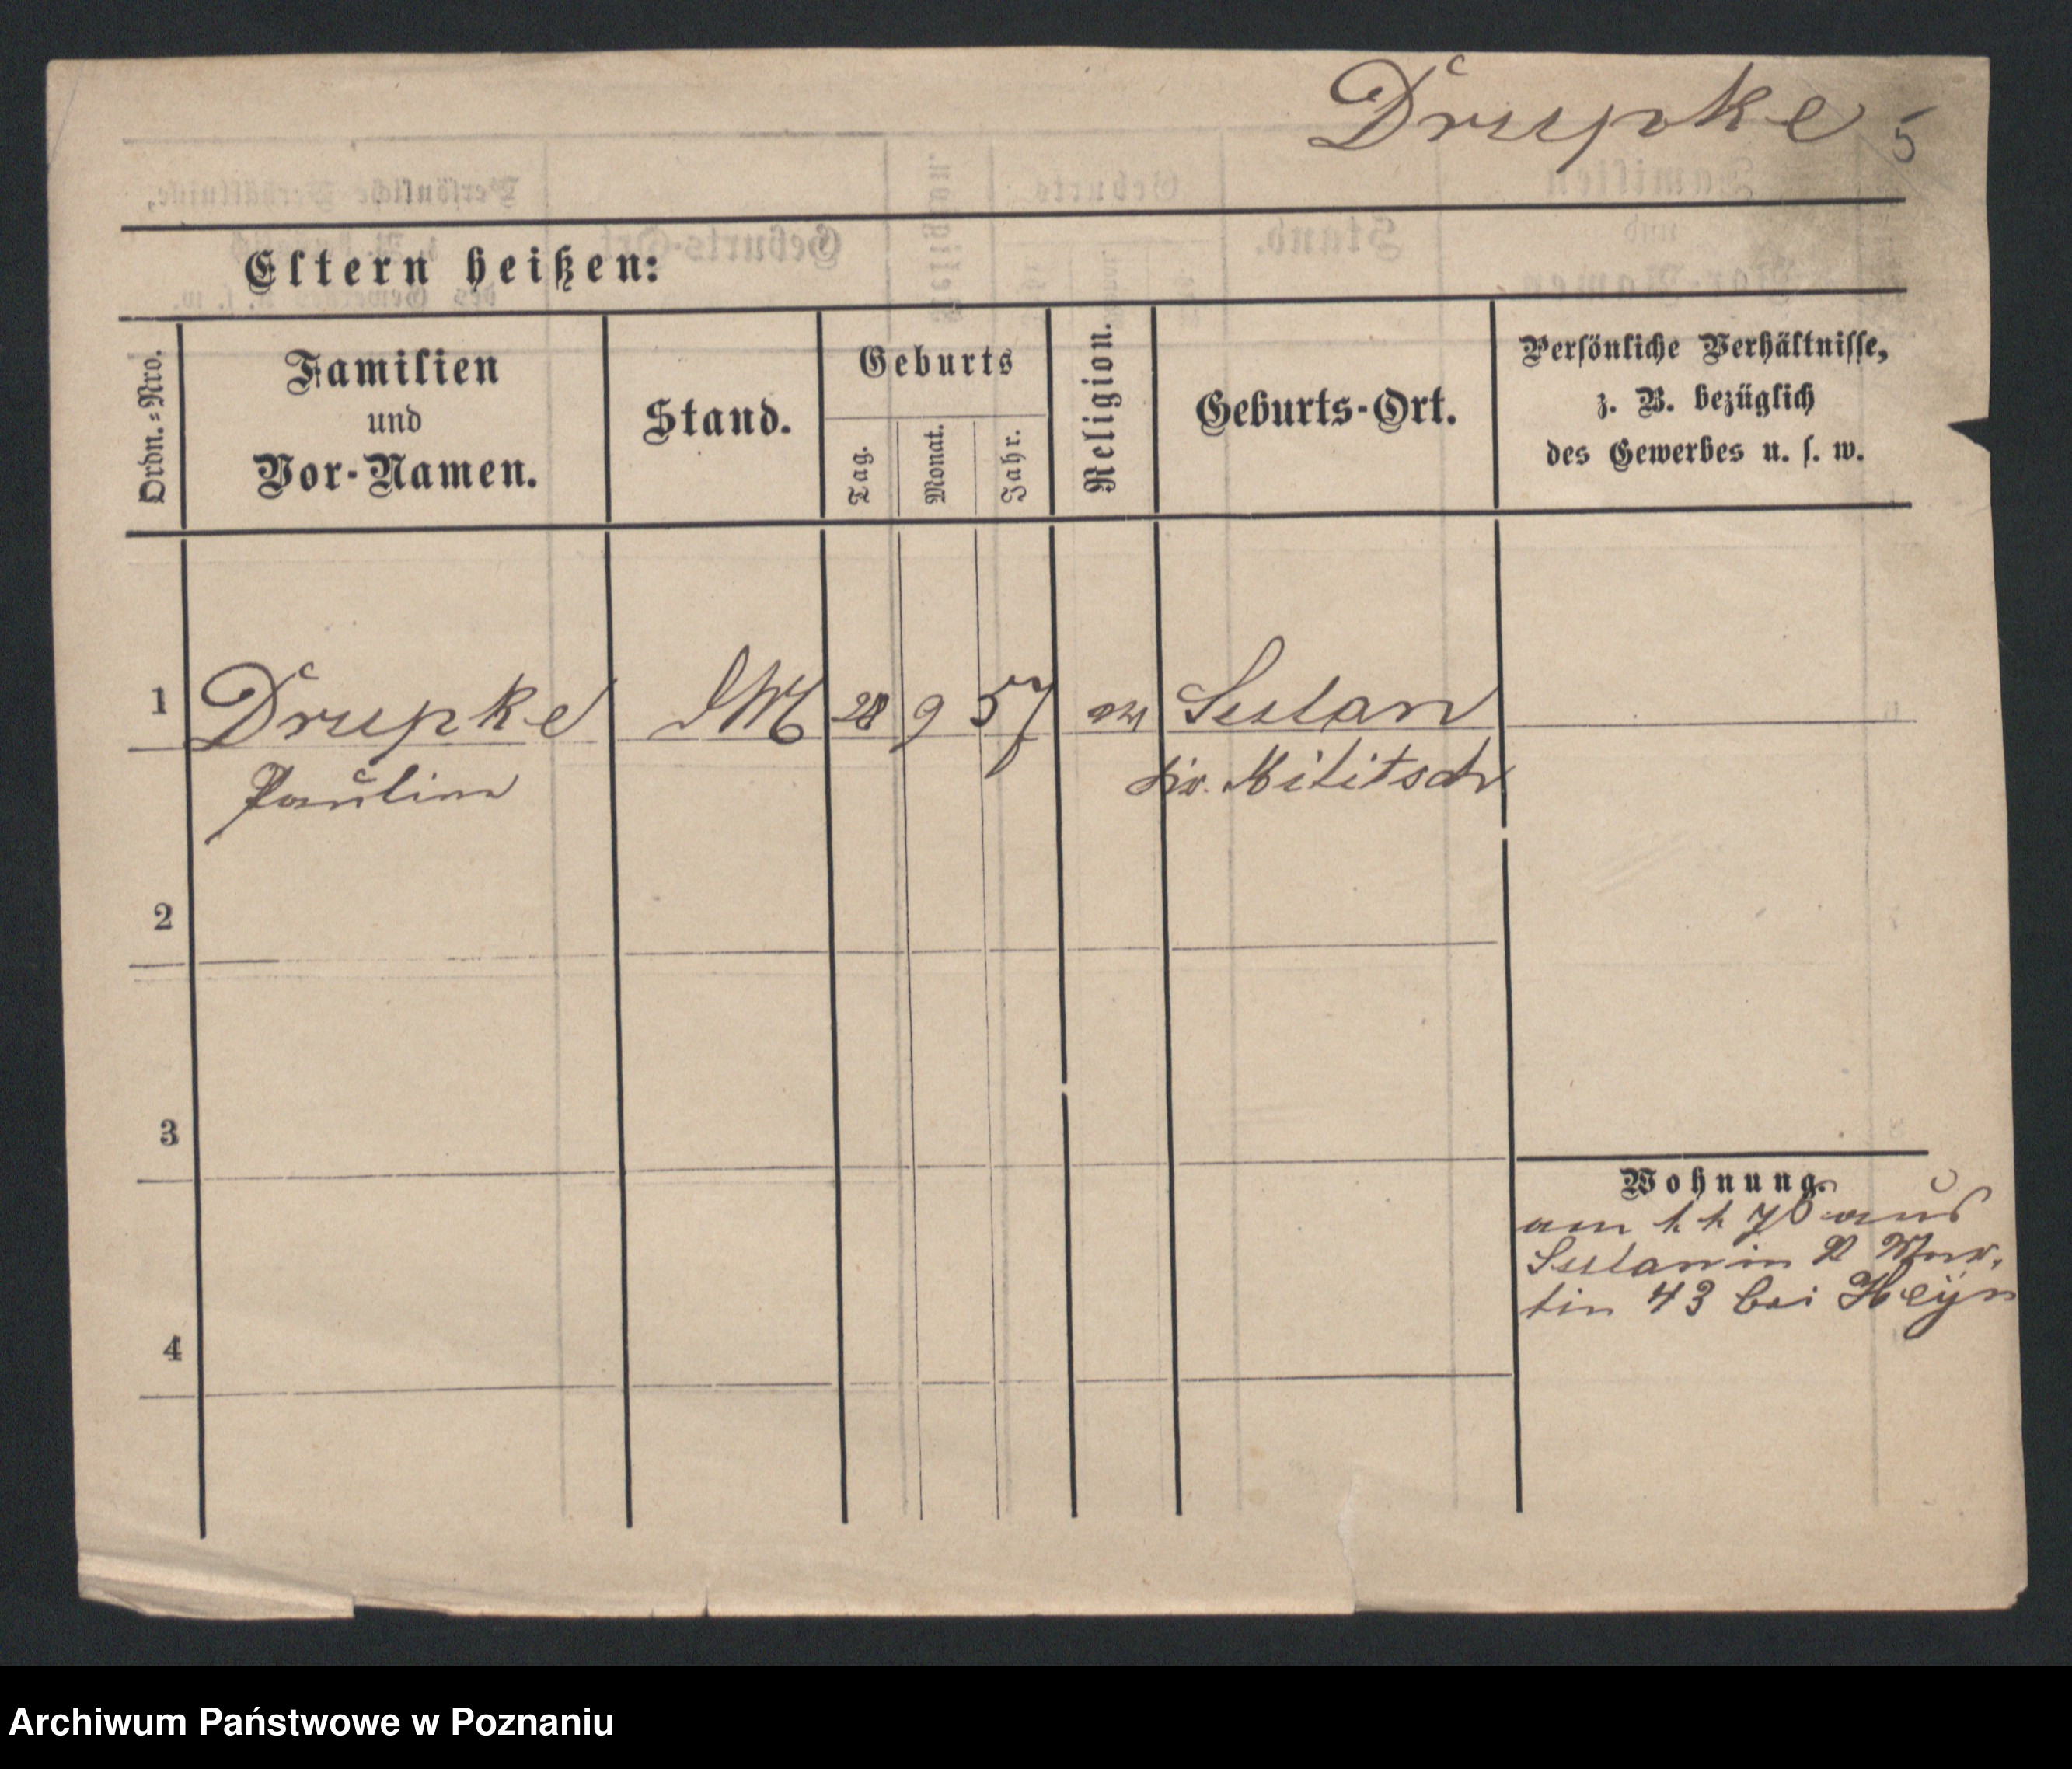 Drupke 5
Eltern heißen:
Ordn.=Nro.
Familien
und
Vor-Namen.
Stand.
Geburts
Tag.
Monat.
Jahr.
Religion.
Geburts-Ort.
Persönliche Verhältnisse,
z. B. bezüglich
des Gewerbes u. s. w.
1 Drupke DM 28 9 57 Sulan
Pauline Kr. Militsch
2
3
4
Wohnung.
am 1 1 70 aus
Sulan in St Mar-
tin 43 bei Heyn
Archiwum Państwowe w Poznaniu